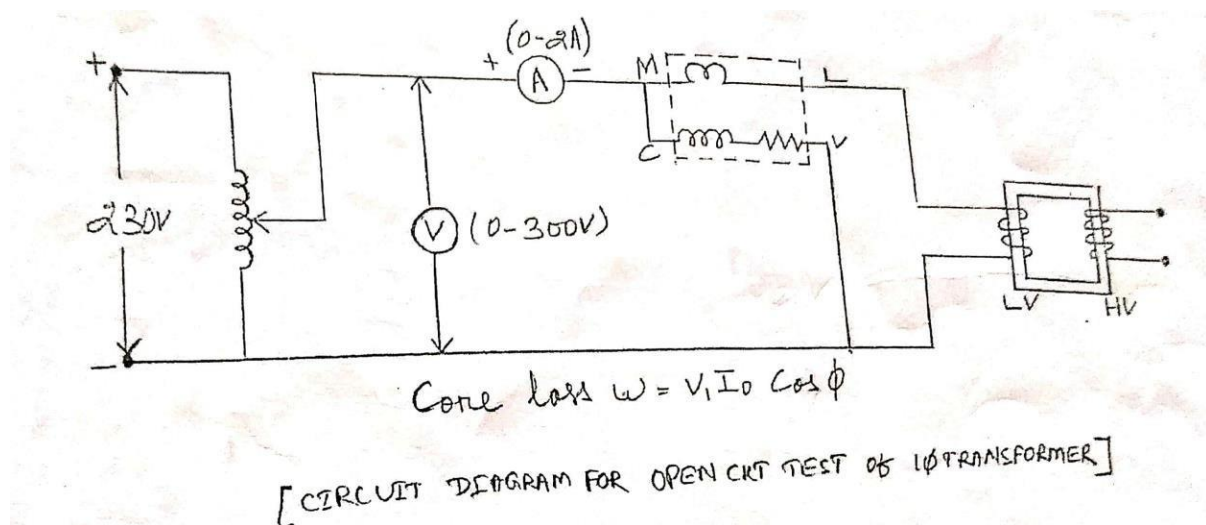 (0-2A)
+
+ A - M L
C V
230V
V (0-300V)
LV HV
-
Core loss W = V₁I₀ Cos ϕ
[CIRCUIT DIAGRAM FOR OPEN CKT TEST of 1ϕ TRANSFORMER]